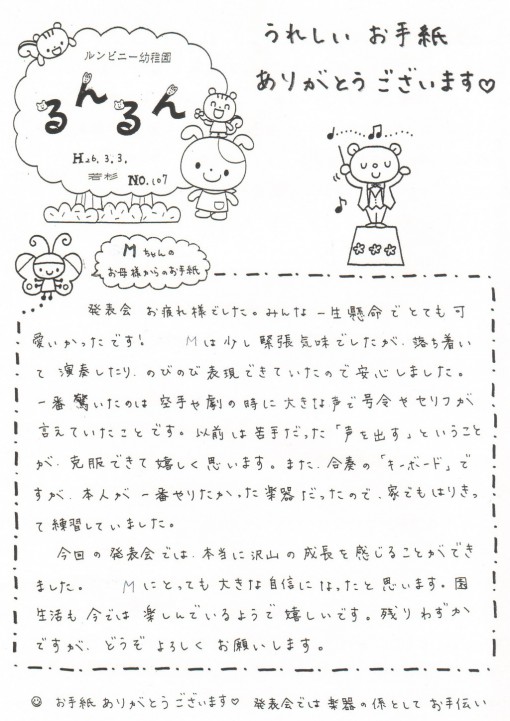 うれしい お手紙
ありがとう ございます♡
ルンビニー幼稚園
るんるん
H26.3.3.
若杉 NO.107
Mちゃんの
お母様からのお手紙
発表会 お疲れ様でした。みんな 一生懸命でとても可
愛いかったです! Mは少し緊張気味でしたが、落ち着い
て 演奏したり、のびのび表現できていたので安心しました。
一番 驚いたのは 空手や劇の時に大きな声で号令やセリフが
言えていたことです。以前は苦手だった「声を出す」ということ
が、克服できて嬉しく思います。また、合奏の「キーボード」で
すが、本人が 一番やりたかった楽器だったので、家でもはりきっ
て練習していました。
今回の発表会では、本当に沢山の成長を感じることができ
ました。 Mにとっても大きな自信になったと思います。園
生活も今では楽しんでいるようで嬉しいです。残りわずか
ですが、どうぞよろしくお願いします。
☺ お手紙ありがとうございます♡ 発表会では楽器の係としてお手伝い